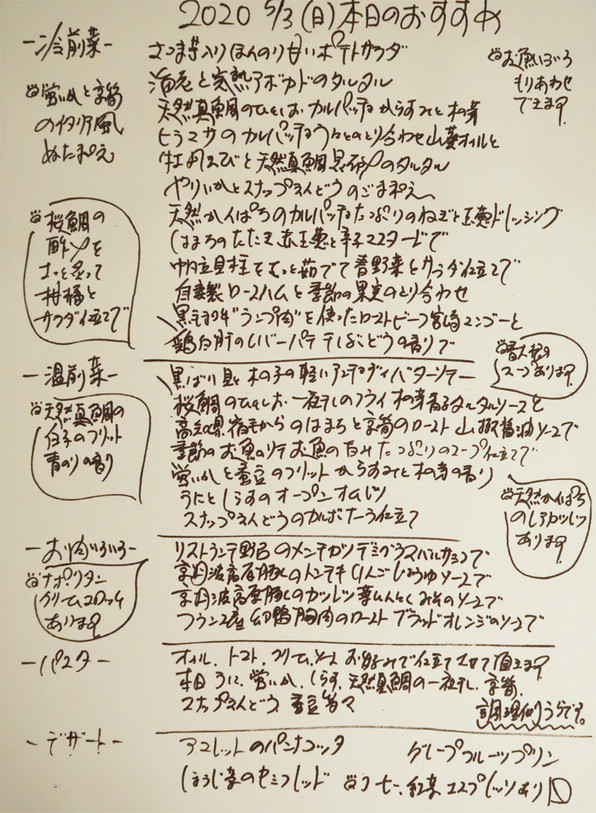 2020 5/3(日)本日のおすすめ
ー冷前菜ー
さつま芋入りほんのり甘いポテトサラダ
海老と完熟アボカドのタルタル
お魚いろいろ
もりあわせ
できます。
蛍いかと京筍
のイタリア風
ぬた和え
天然真鯛のひとしお カルパッチョ からすみと 木の芽
ヒラマサのカルパッチョ うにとのとり合わせ 山葵オイルと
牡丹えびと天然真鯛 昆布〆のタルタル
やりいかとスナップえんどうのごま和え
天然かんぱちのカルパッチョ たっぷりのねぎと玉葱ドレッシング
はまちのたたき 赤玉葱と辛子マスタードで
帆立貝柱をさっと茹でて 春野菜とサラダ仕立てで
自家製ロースハムと季節の果実のとり合わせ
黒毛和牛"ランプ肉"を使ったローストビーフ 宮崎マンゴーと
鶏白肝のレバーパテ しぶどうの香りで
桜鯛の
酢〆を
さっと炙って
柑橘と
サラダ仕立てで
ー温前菜ー
黒ばい貝と木の子の軽い バターソテー
スープあります。
桜鯛のひとしお 一夜干しのフライ 木の芽香るタルタルソースと
高知県宿毛からのはまちと京筍のロースト 山椒醤油ソースで
季節のお魚のソテー お魚の旨みたっぷりのスープ仕立てで
蛍いかと蚕豆のフリット からすみと木の芽の香り
うにとしらすのオープンオムレツ
スナップえんどうのカルボナーラ仕立て
天然真鯛の
白子のフリット
青のりの香り
天然かんぱち
のレアカツレツ
あります。
ーお肉いろいろー
リストランテ野呂のメンチカツ デミグラスバルサミコで
京丹波高原豚のトンテキ りんごじょうゆソースで
京丹波高原豚のカツレツ 華にんにくみそのソースで
フランス産 胸肉のロースト ブラッドオレンジのソースで
ナポリタン
クリームコロッケ
あります。
ーパスターー
オイル、トマト、クリームソース お好みで仕立てさせて頂きます。
本日 うに、蛍いか、しらす、天然真鯛の一夜干し、京筍、
スナップえんどう、蚕豆等々
調理例うらです。
ーデザートー
アマレットのパンナコッタ
グレープフルーツプリン
ほうじ茶のセミフレッド
コーヒー、紅茶、エスプレッソあり